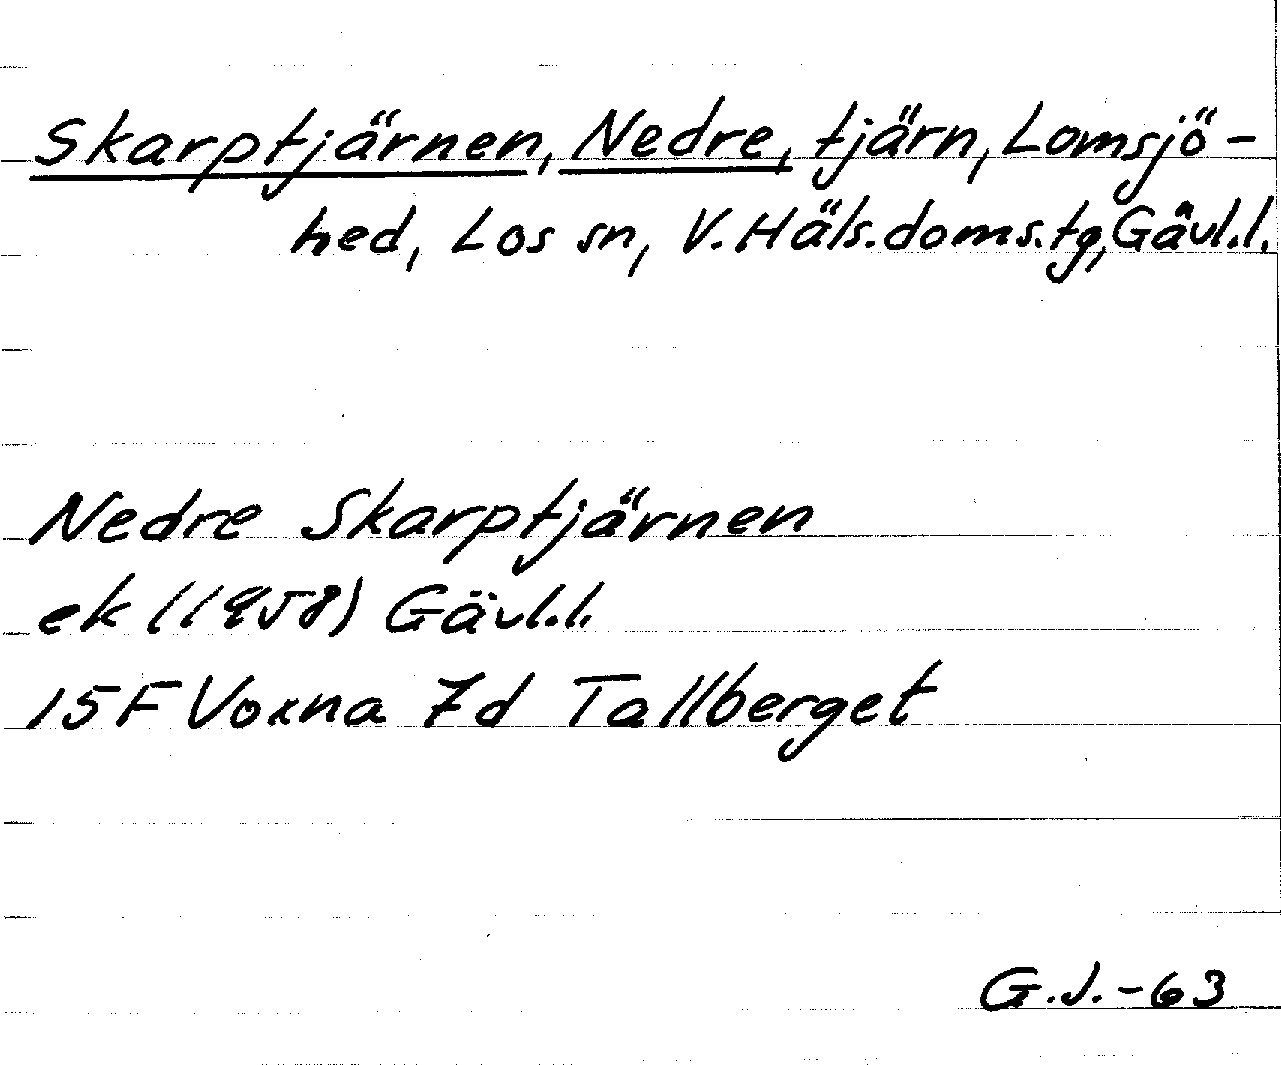 Skarptjärnen, Nedre, tjärn, Lomsjö-
hed, Los sn, V. Häls. doms.tg, Gävl.l.
Nedre Skarptjärnen
ek (1958) Gävl.l.
15F Voxna 7d Tallberget
G.J.-63